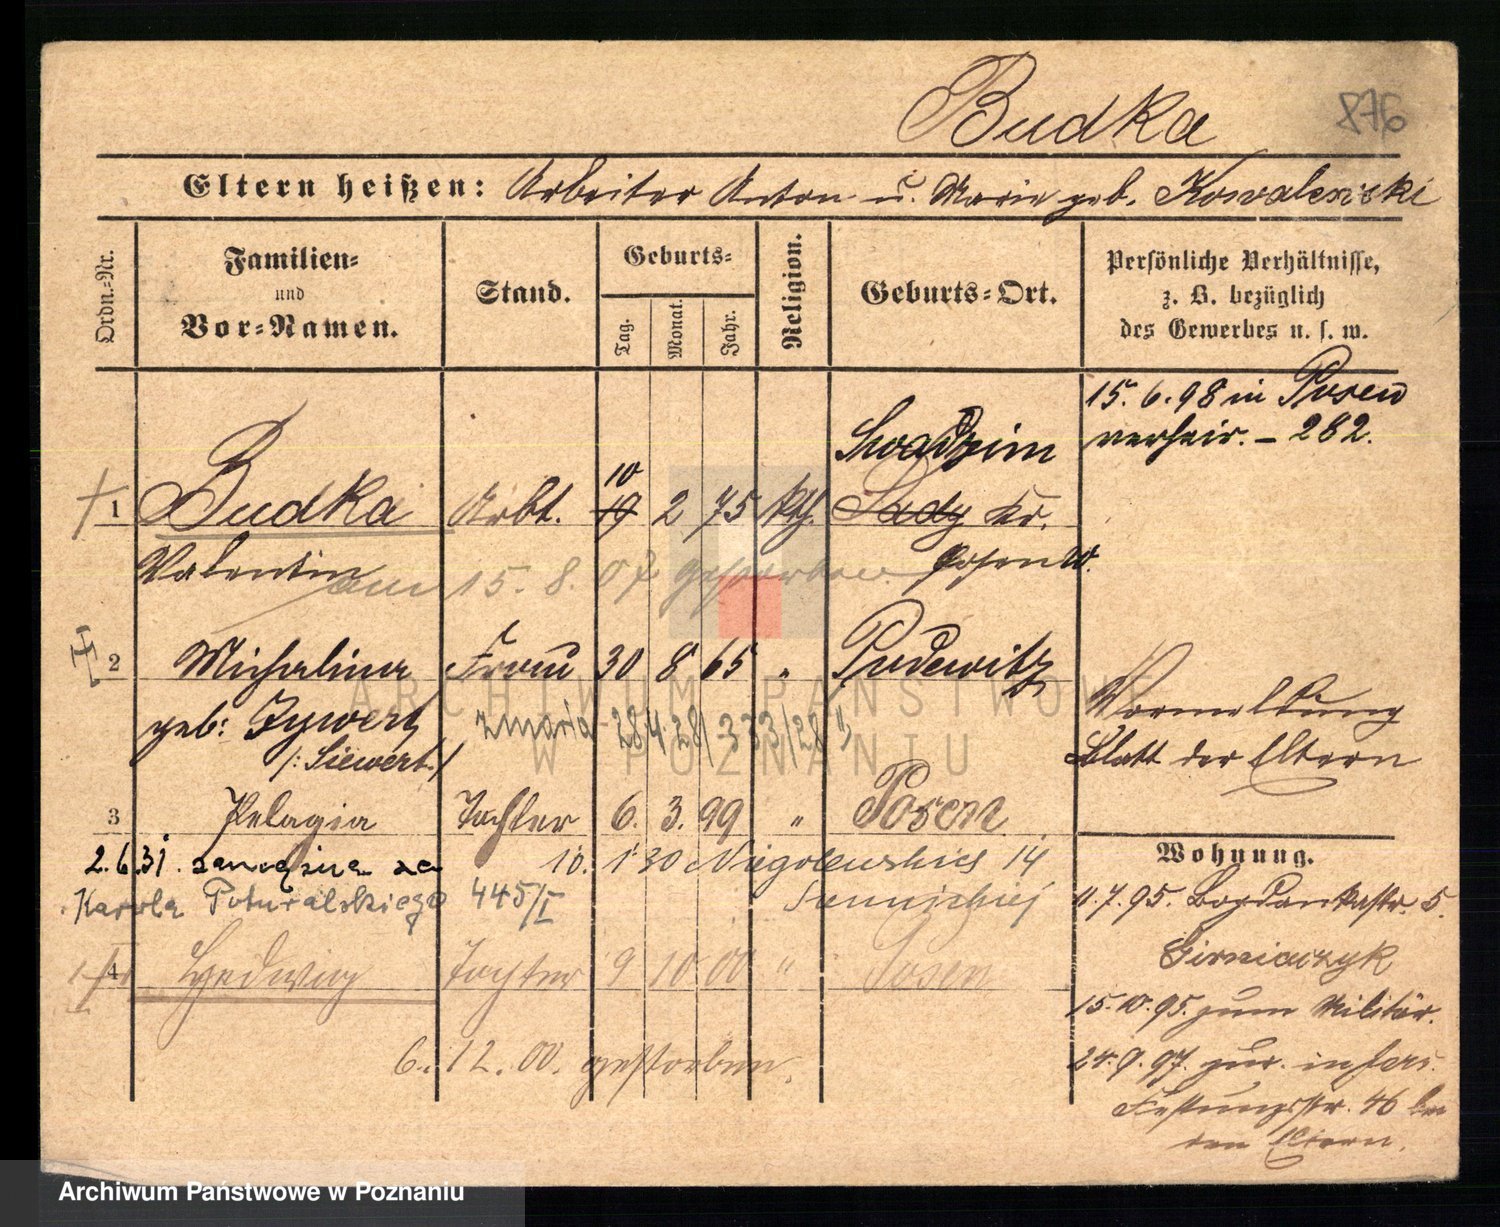 Budka
876
Eltern heißen: Arbeiter Anton u. Marie geb. Kowalewski
Ordn.=Nr.
Familien=
und
Vor=Namen.
Stand.
Geburts=
Tag.
Monat.
Jahr.
Religion.
Geburts=Ort.
Persönliche Verhältnisse,
z. B. bezüglich
des Gewerbes u. s. w.
15. 6. 98 in Posen
verheir. – 262.
Swadzim
10
1 Budka Arbt. 19 2 75 kth. Sady Kr.
Valentin Posen W.
am 15. 8. 07 gestorben.
2 Michalina Frau 30 8 65 " Pudewitz
geb: Zywert
/: Siewert :/
zmarła 28/4 28 / 333/28
Vormeldung
Blatt der Eltern
3 Pelagia Tochter 6. 3. 99 " Posen
2.6.31. zamężna za
Karola Poturalskiego 445/I
10. 1 30 Niegolewskich 14
4 Hedwig Tochter 9 10 00 " Posen
6. 12. 00. gestorben.
Wohnung.
11.7.95. Bogdankastr. 5.
15.10.95. zum Militär.
24.9.97. zur.
Festungsstr. 46 bei
den Eltern.
ARCHIWUM PAŃSTWOWE
W POZNANIU
Archiwum Państwowe w Poznaniu